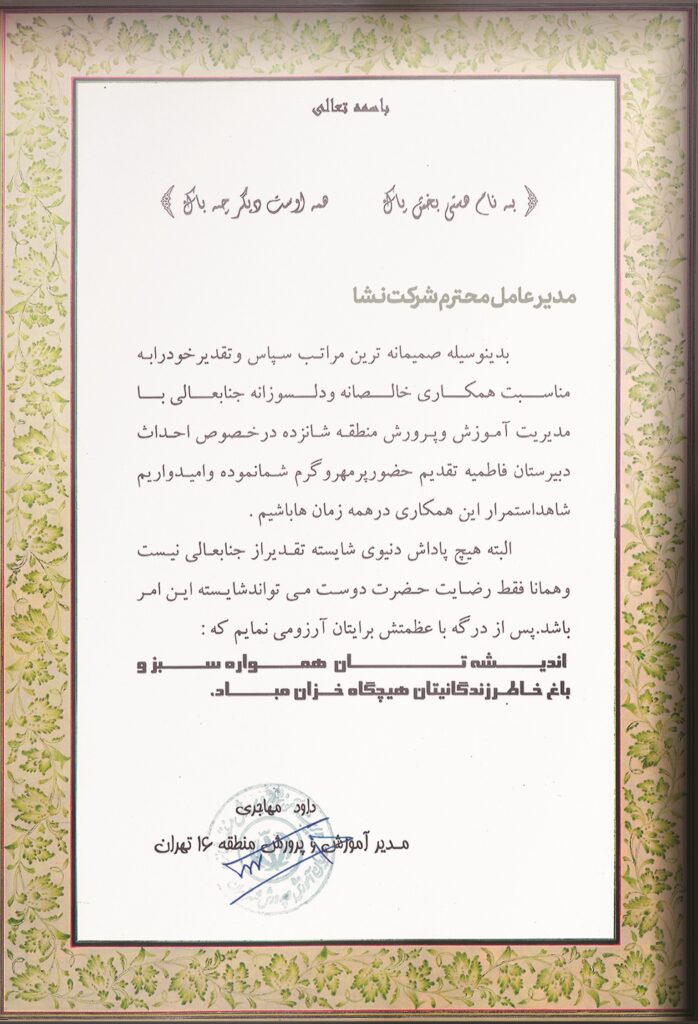 باسمه تعالی
به نام هستی بخش پاک همه اوست دیگر چه باک
مدیرعامل محترم شرکت نشا
بدینوسیله صمیمانه ترین مراتب سپاس وتقدیرخودرابه
مناسبت همکاری خالصانه ودلسوزانه جنابعالی با
مدیریت آموزش وپرورش منطقه شانزده درخصوص احداث
دبیرستان فاطمیه تقدیم حضورپرمهروگرم شمانموده وامیدواریم
شاهداستمرار این همکاری درهمه زمان هاباشیم .
البته هیچ پاداش دنیوی شایسته تقدیراز جنابعالی نیست
وهمانا فقط رضایت حضرت دوست می تواندشایسته این امر
باشد.پس از درگه با عظمتش برایتان آرزومی نمایم که :
اندیشه تان همواره سبز و
باغ خاطرزندگانیتان هیچگاه خزان مباد.
داود مهاجری
مدیر آموزش و پرورش منطقه ۱۶ تهران